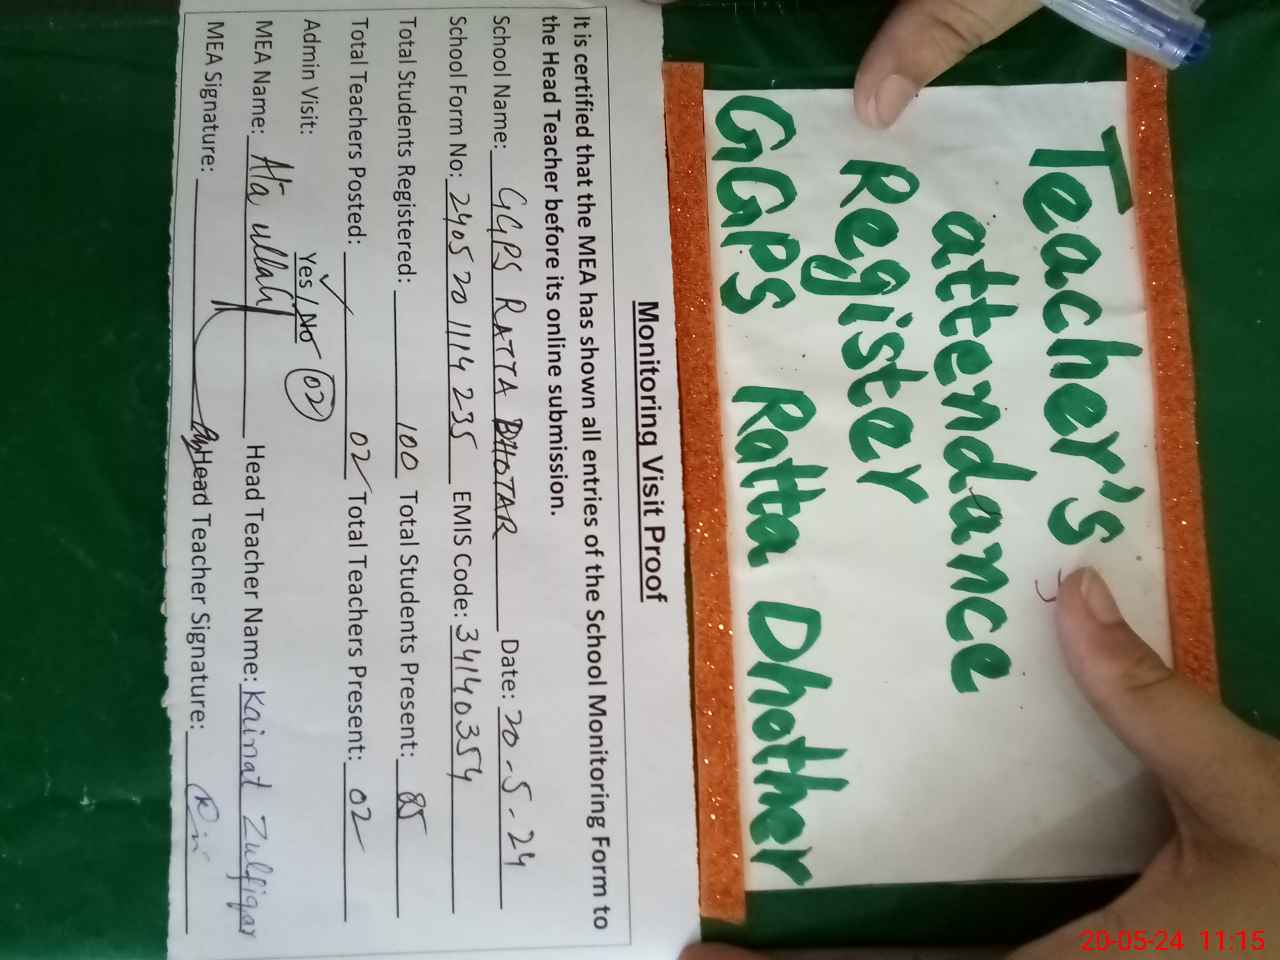 Teacher's
attendance
Register
GGPS Ratta Dhother
Monitoring Visit Proof
It is certified that the MEA has shown all entries of the School Monitoring Form to
the Head Teacher before its online submission.
School Name: GGPS RATTA DHOTAR Date: 20-5-24
School Form No: 240520 1114 235 EMIS Code: 34140354
Total Students Registered: 100 Total Students Present: 85
Total Teachers Posted: 02 Total Teachers Present: 02
Admin Visit: Yes/No 02
MEA Name: Ata ullah Head Teacher Name: Kainat Zulfiqar
MEA Signature: Head Teacher Signature:
20-05-24 11:15